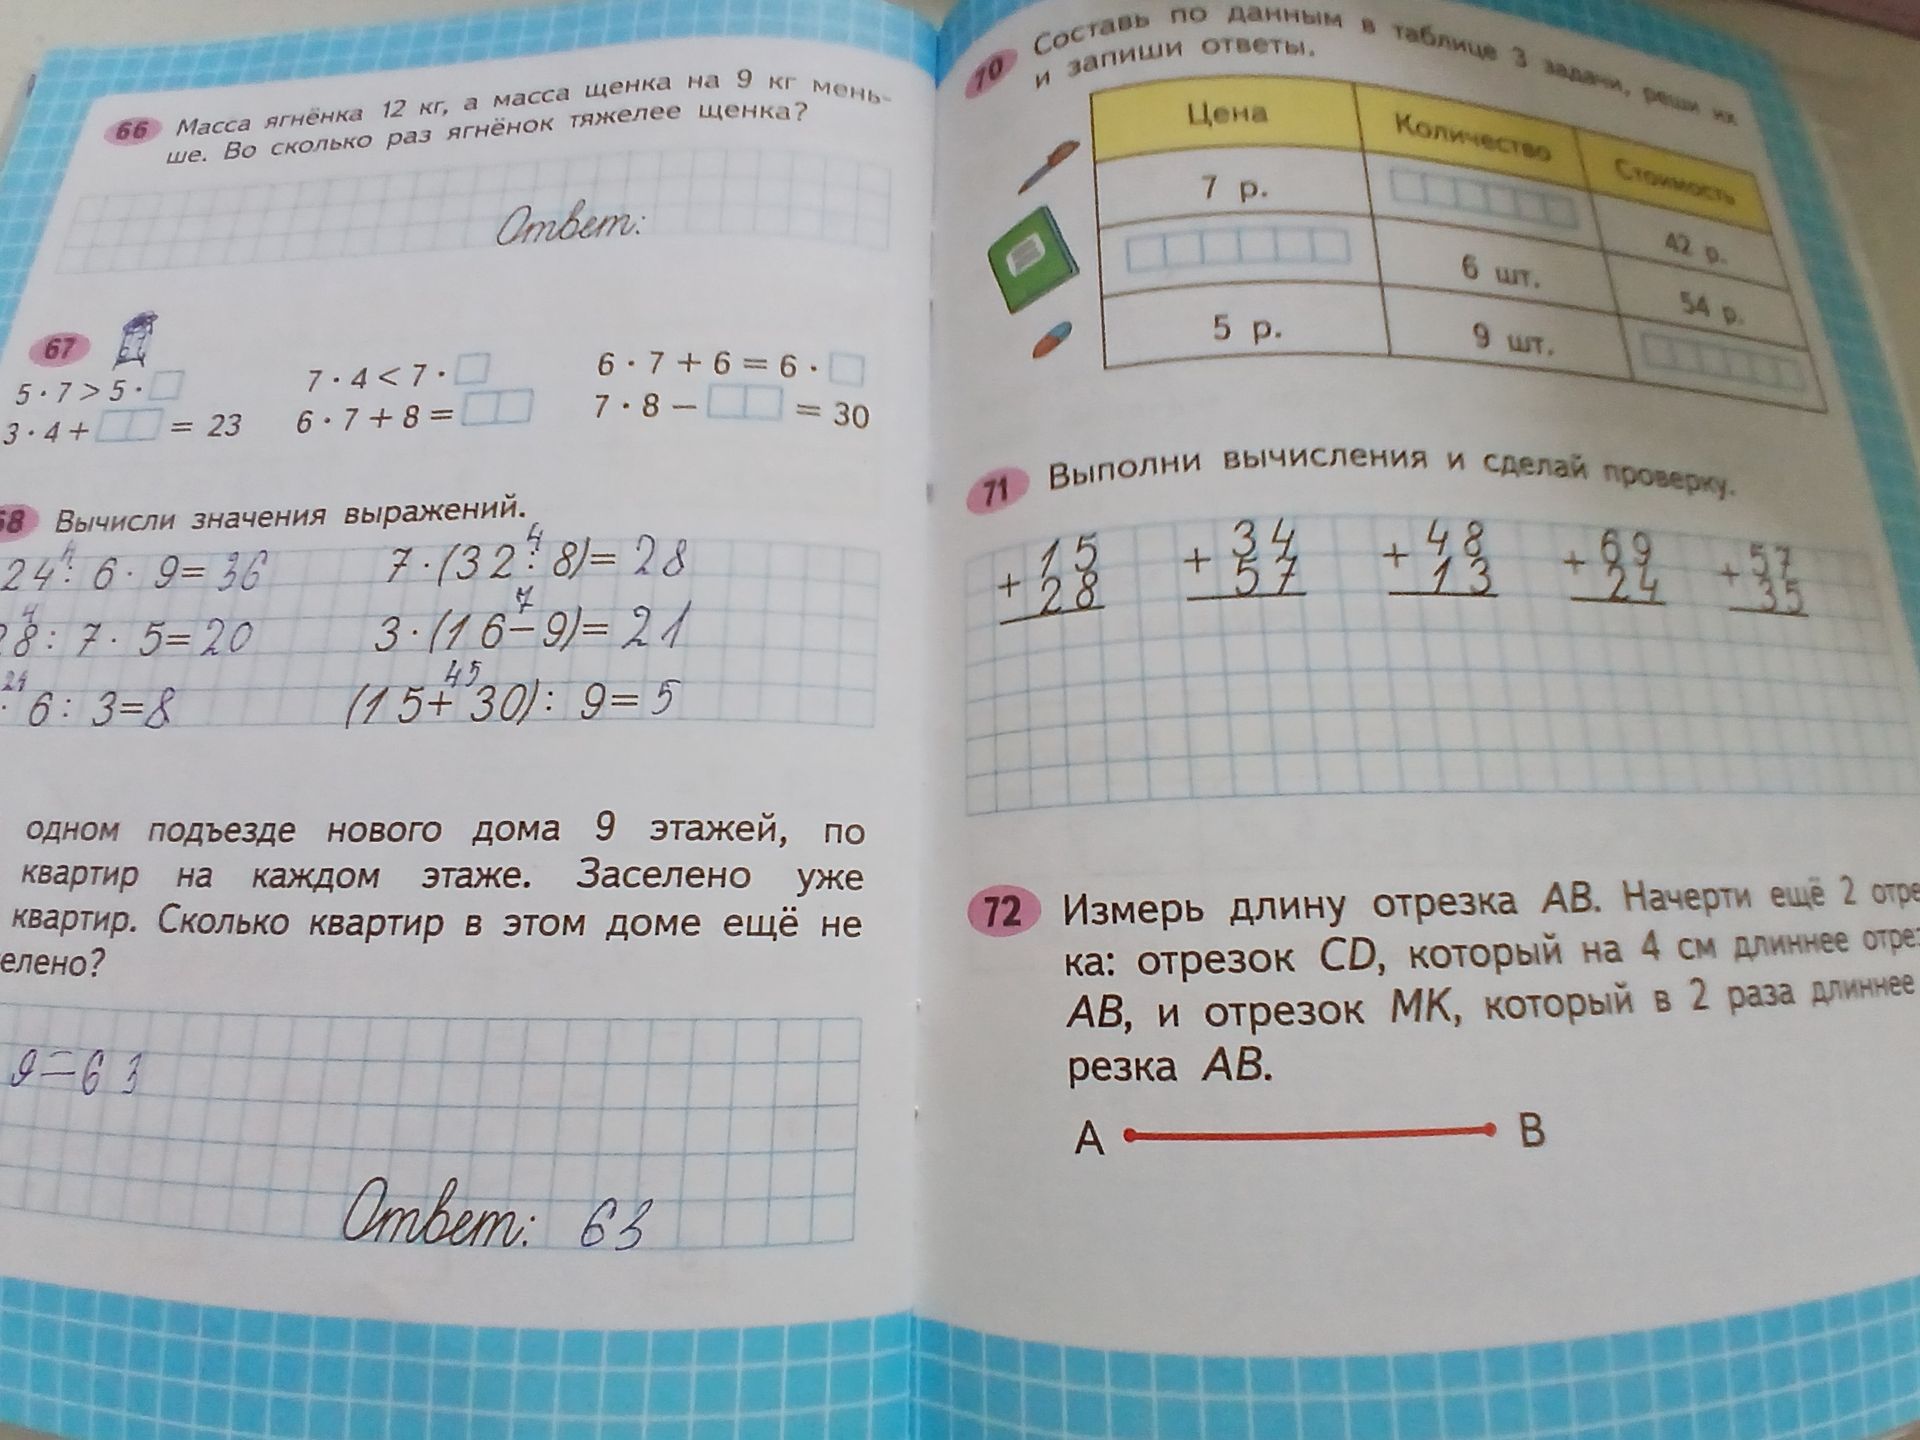 66 Масса ягнёнка 12 кг, а масса щенка на 9 кг мень-
ше. Во сколько раз ягнёнок тяжелее щенка?
Ответ:
67
5 · 7 > 5 ·
7 · 4 < 7 ·
6 · 7 + 6 = 6 ·
3 · 4 + = 23
6 · 7 + 8 =
7 · 8 − = 30
68 Вычисли значения выражений.
4
24 : 6 · 9 = 36
4
7 · (32 : 8) = 28
4
28 : 7 · 5 = 20
7
3 · (16 − 9) = 21
24
· 6 : 3 = 8
45
(15 + 30) : 9 = 5
одном подъезде нового дома 9 этажей, по
квартир на каждом этаже. Заселено уже
квартир. Сколько квартир в этом доме ещё не
елено?
9 = 63
Ответ: 63
70 Составь по данным в таблице 3 задачи, реши их
и запиши ответы.
Цена Количество Стоимость
7 р. 42 р.
6 шт. 54 р.
5 р. 9 шт.
71 Выполни вычисления и сделай проверку.
+ 15
28
+ 34
57
+ 48
13
+ 69
24
+ 57
35
72 Измерь длину отрезка AB. Начерти ещё 2 отре
ка: отрезок CD, который на 4 см длиннее отрез
AB, и отрезок MK, который в 2 раза длиннее
резка AB.
A B